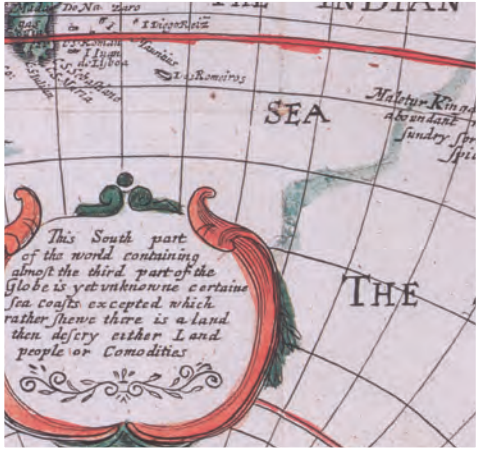 THE INDIAN
De Na
I Diego Roiz
I Iuan
de Lisboa
Mauritius
S Sebastiano
S Maria
Dos Romeiros
SEA
Maletur King
aboundant
sundry
THE
This South part
of the world containing
almost the third part of the
Globe is yet unknowne certaine
sea coasts excepted which
rather shewe there is a land
then descry either Land
people or Comodities